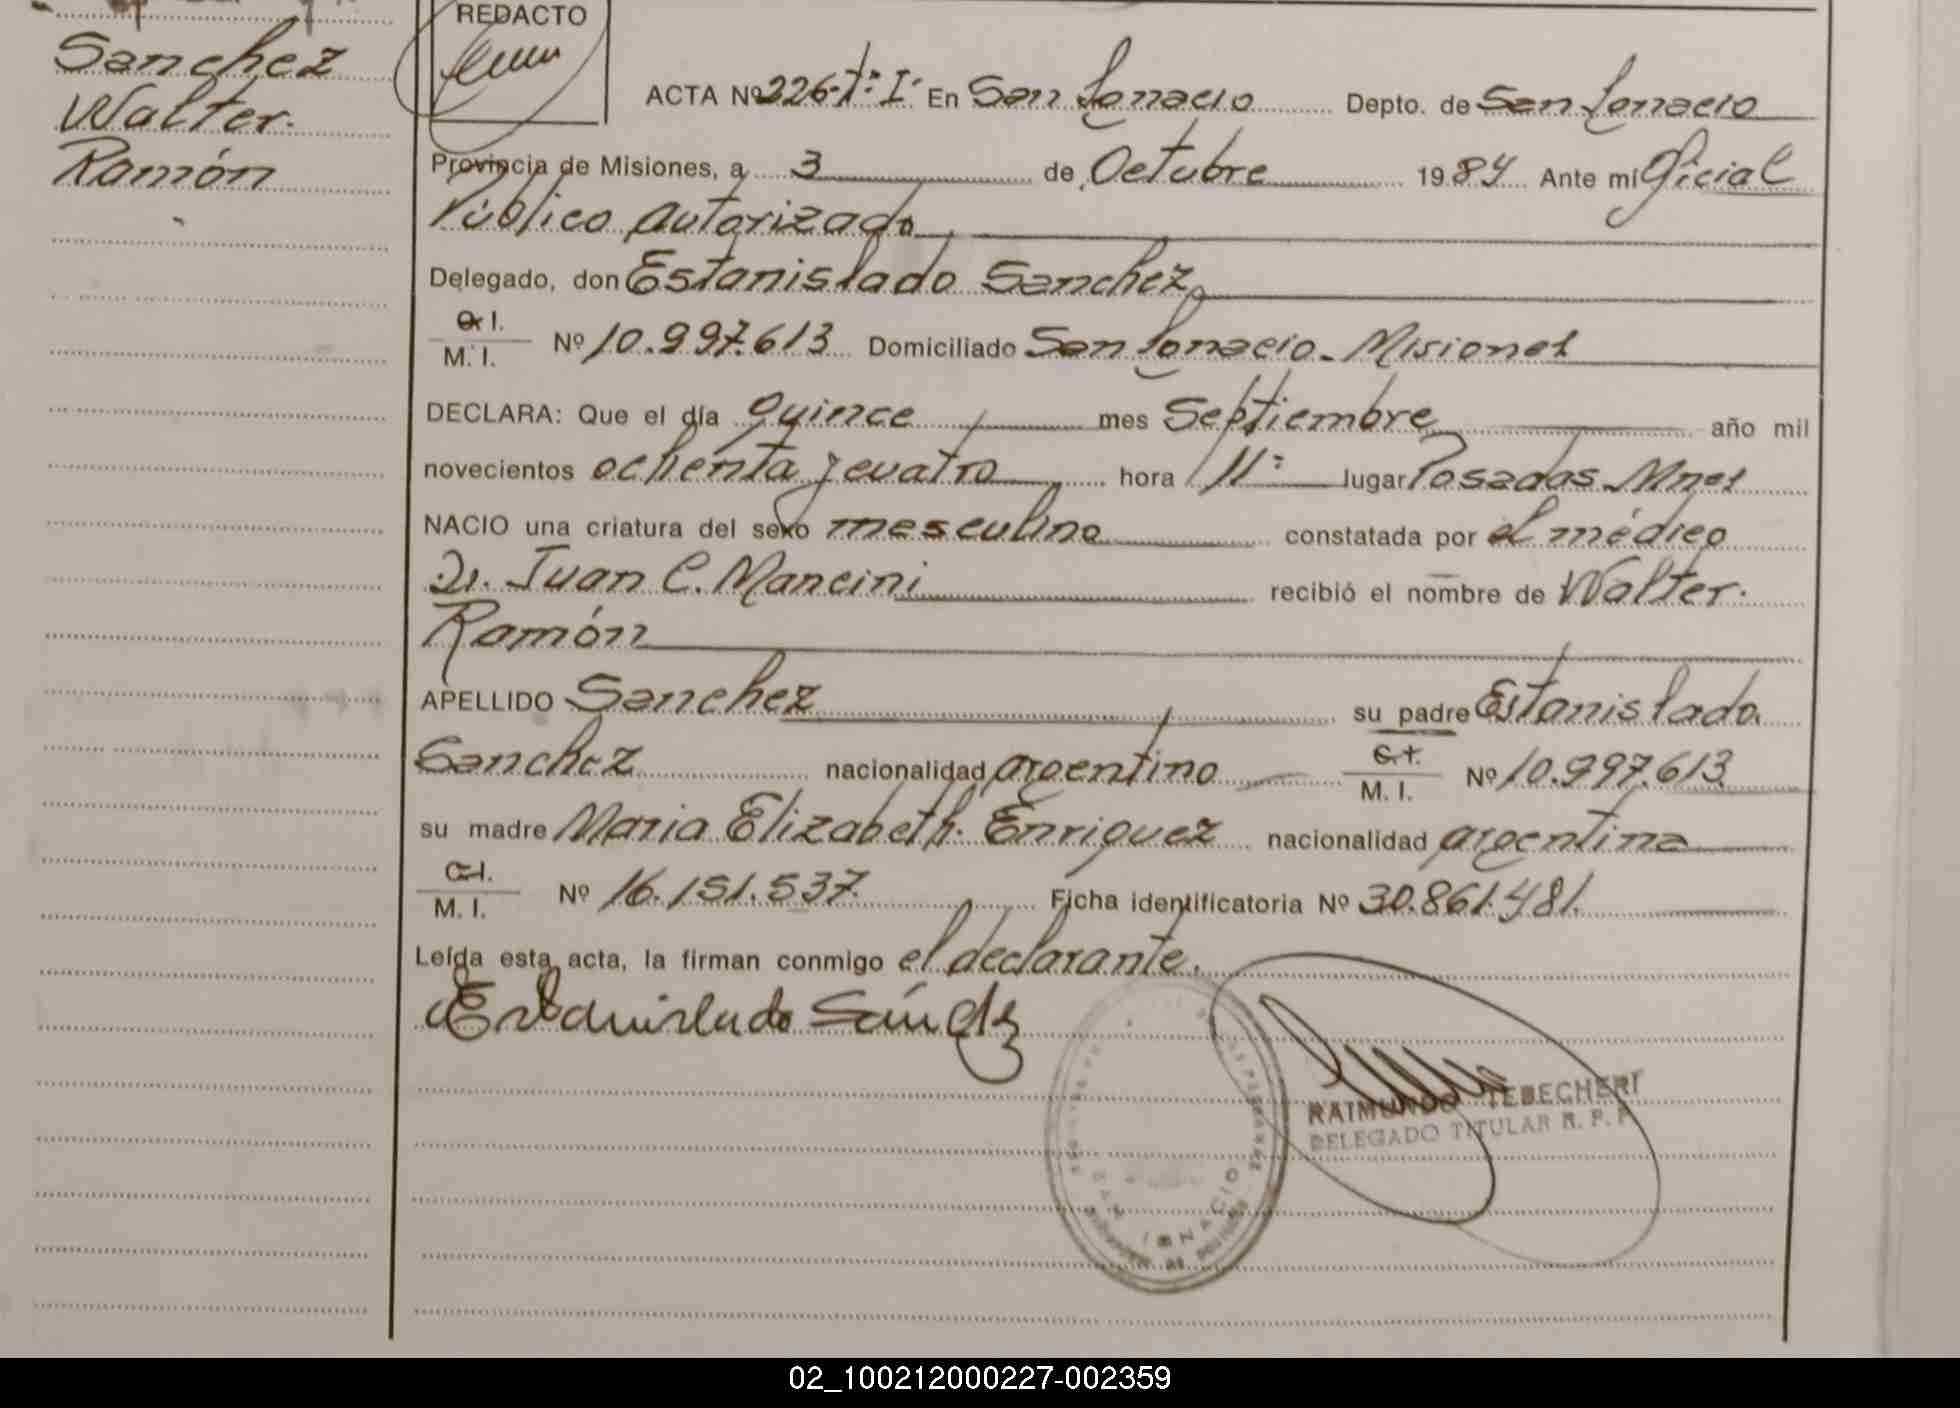 Sanchez
Walter.
Ramón
REDACTO
ACTA Nº 226-Tº I. En San Ignacio Depto. de San Ignacio
Provincia de Misiones, a 3 de Octubre 1984 Ante mi Oficial
Público autorizado
Delegado, don Estanislado Sanchez
C. I.
M. I. Nº 10.997.613 Domiciliado San Ignacio - Misiones
DECLARA: Que el día quince mes Septiembre año mil
novecientos ochenta y cuatro hora 11:- lugar Posadas Mnes
NACIO una criatura del sexo masculino constatada por el médico
Dr. Juan C. Mancini recibió el nombre de Walter.
Ramón
APELLIDO Sanchez su padre Estanislado
Sanchez nacionalidad argentino C. I.
M. I. Nº 10.997.613
su madre Maria Elizabeth. Enriquez nacionalidad argentina
C. I.
M. I. Nº 16.151.537 Ficha identificatoria Nº 30.861.481.
Leída esta acta, la firman conmigo el declarante.
Estanislado Sánchez
SAN IGNACIO
RAIMUNDO TEBECHERI
DELEGADO TITULAR R. P. P.
02_100212000227-002359